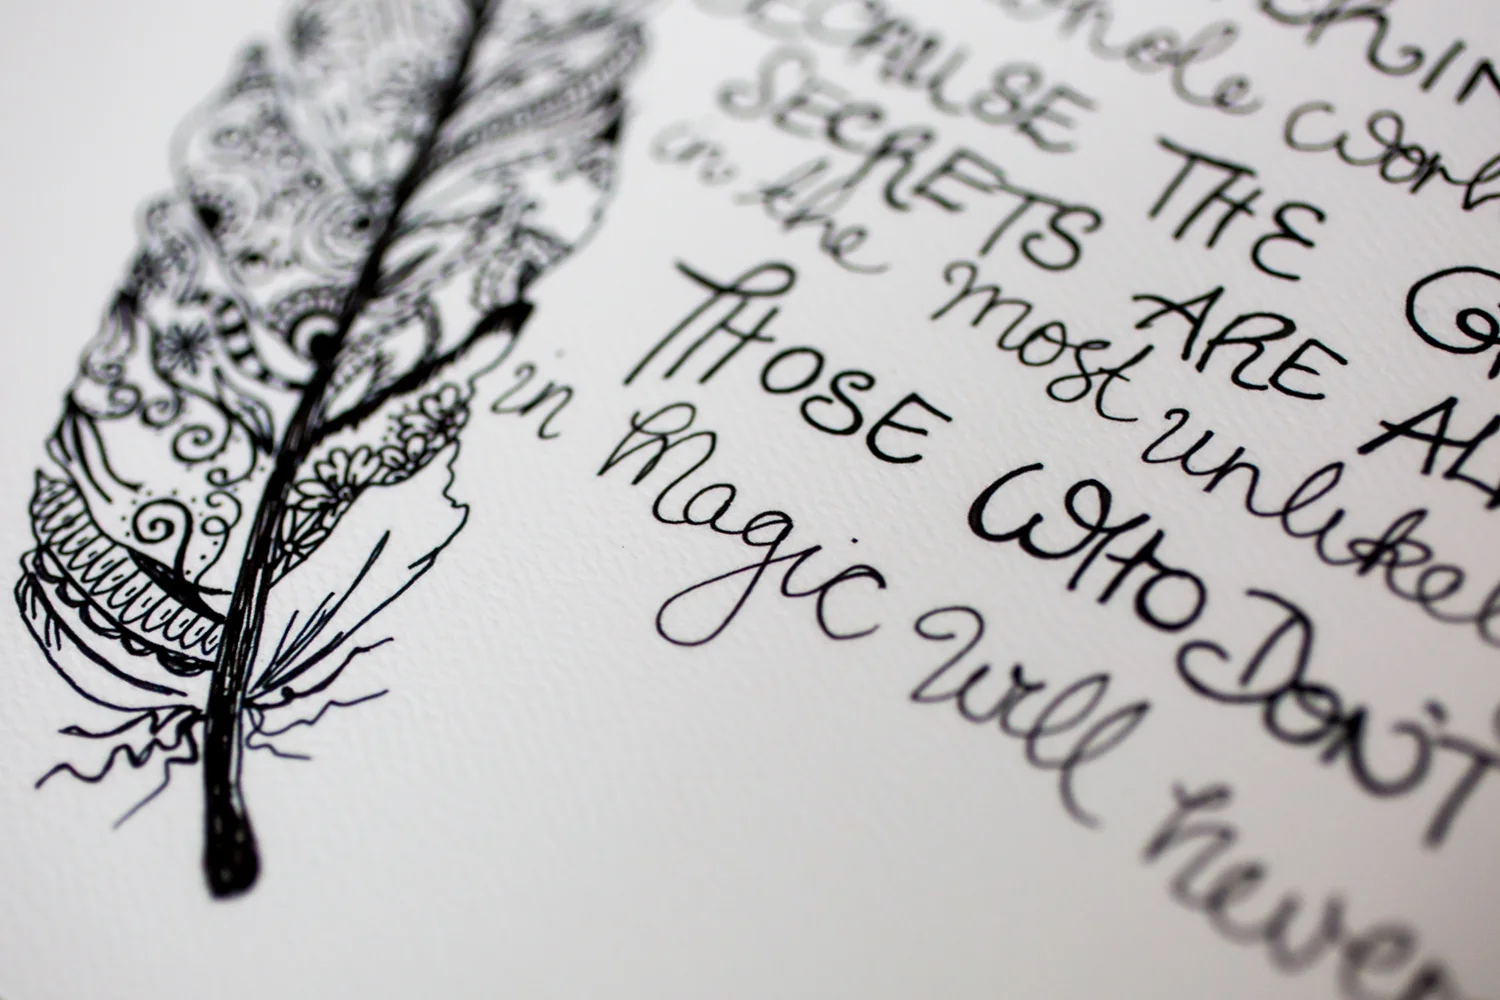 hIN
whole worl
ECAUSE THE G
SECRETS ARE AL
in the most unlikel
THOSE WHO DON'T
in Magic will never